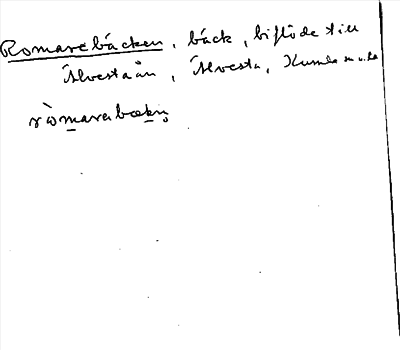 Romarebäcken, bäck, biflöde till
Älvestaån, Älvesta, Kumla sn
ròmarabækn̥